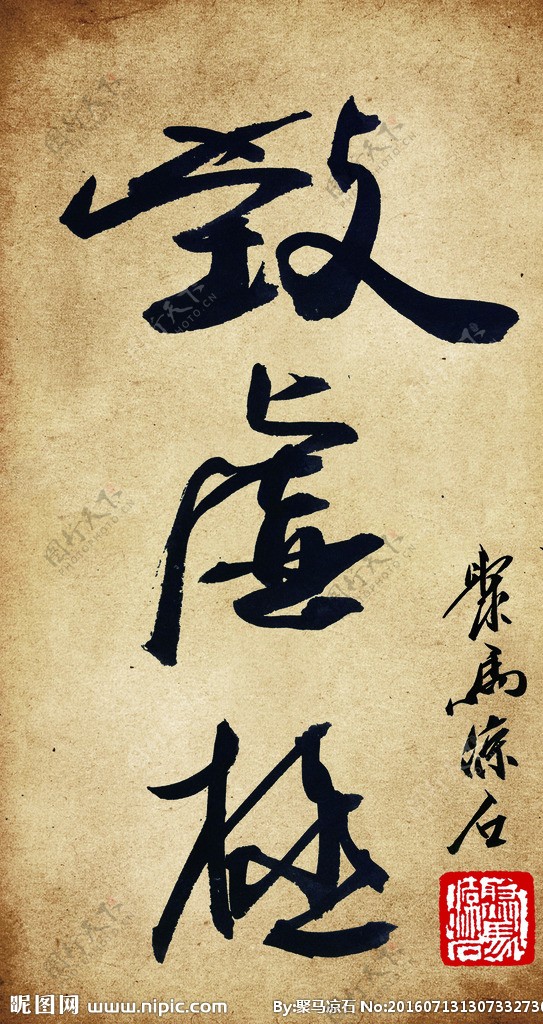 致虚極
聚馬凉石
聚馬凉石
昵图网 www.nipic.com
By:聚马凉石 No:20160713130733273